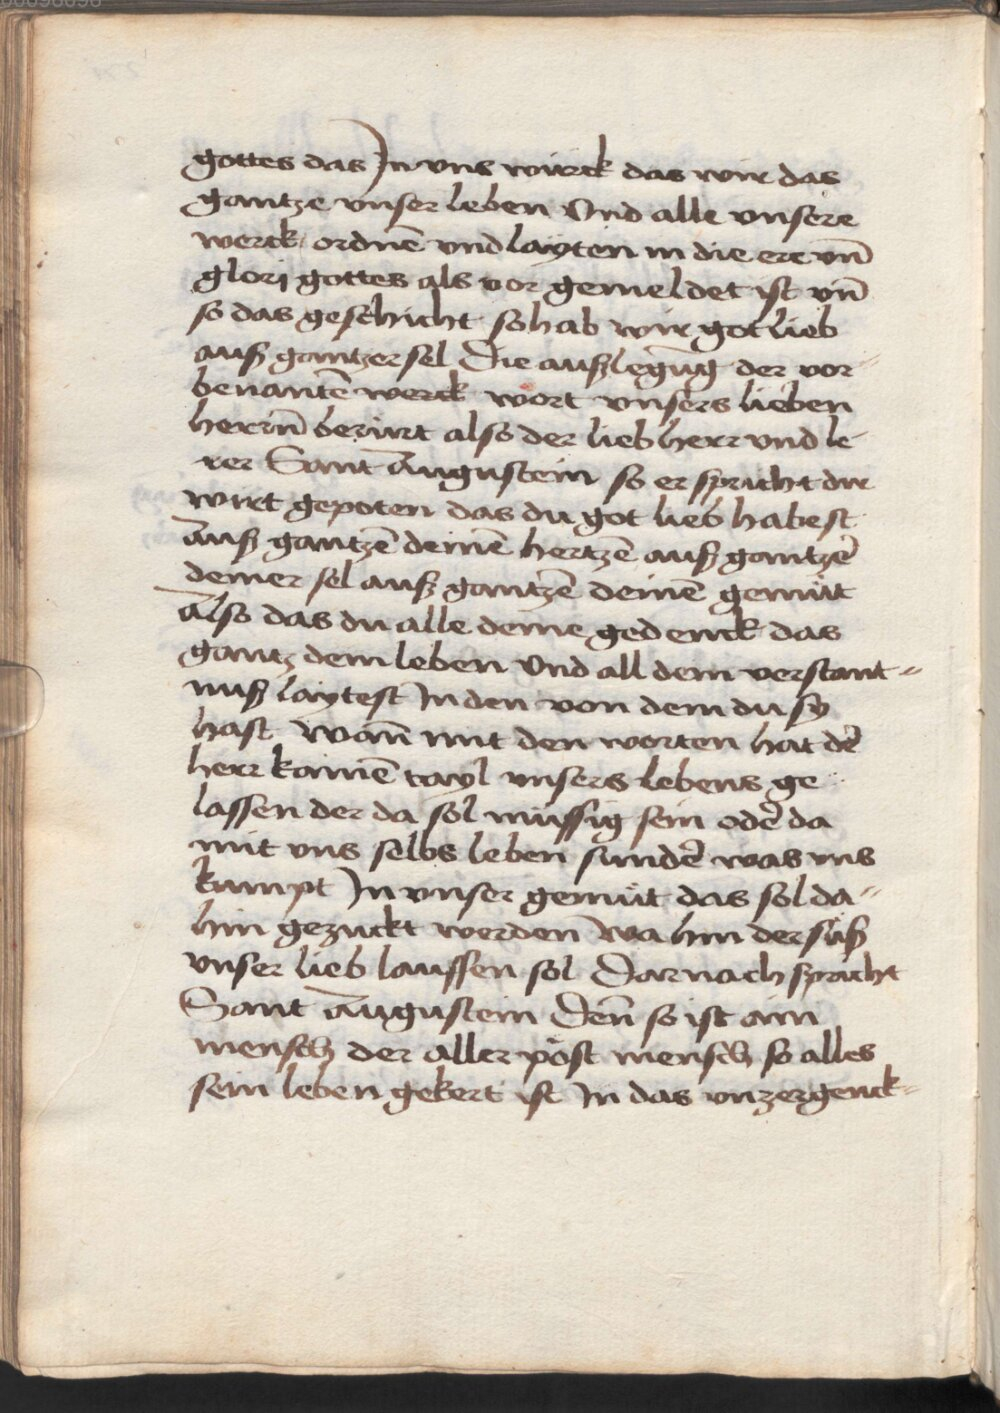 gottes das In vns würck das wir das
gantze vnser leben Vnd alle vnsere
werck ordnē vnd layten in die ere vn̄
glorj gottes als vor gemeldet ist vn̄
so das geschicht so hab wir got lieb
auß gantzer sel Die außlegūg der vor⸗
benantē werck wort vnsers lieben
herrn̄ berürt also der lieb herr vnd le⸗
rer Sant Augustein so er spricht dir
wirt gepoten das du got lieb habest
Auß gantzē deinē hertzē auß gantzer̄
deiner sel auß gantzē deinē gemüt
Also das du alle deine gedenck das
gantz dein leben Vnd all dein verstant⸗
nuß laytest In den von dem du sy
hast Wan̄ mit den worten hat der̄
herr kainē tayl vnsers lebens ge⸗
lassen der da sol müssig sein oder̄ da
mit vns selbs leben sunder̄ was vns
kumpt In vnser gemüt das sol da⸗
hin gezuckt werden wa hin der füß
vnser lieb lauffen sol Darnach spricht
Sant Augustein Den̄ so ist ain
mensch der aller pöst mensch so alles
sein leben gekert ist In das vnzergenck⸗